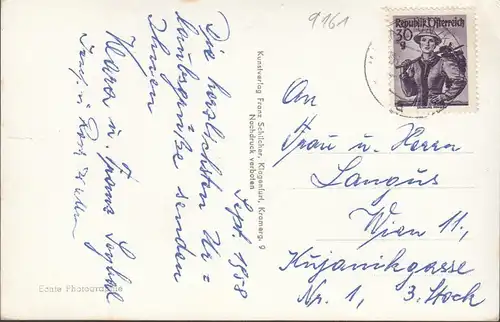 9161
Sept. 1958
Die herzlichsten Ur=
laubsgrüße senden
Ihnen
Klara u. Franz
Kunstverlag Franz Schilcher, Klagenfurt, Kramerg. 9
Nachdruck verboten
Echte Photographie
Republik Österreich
30
g
An
Frau u. Herrn
Langus
Wien 11,
Kujanikgasse
Nr. 1, 3. Stock